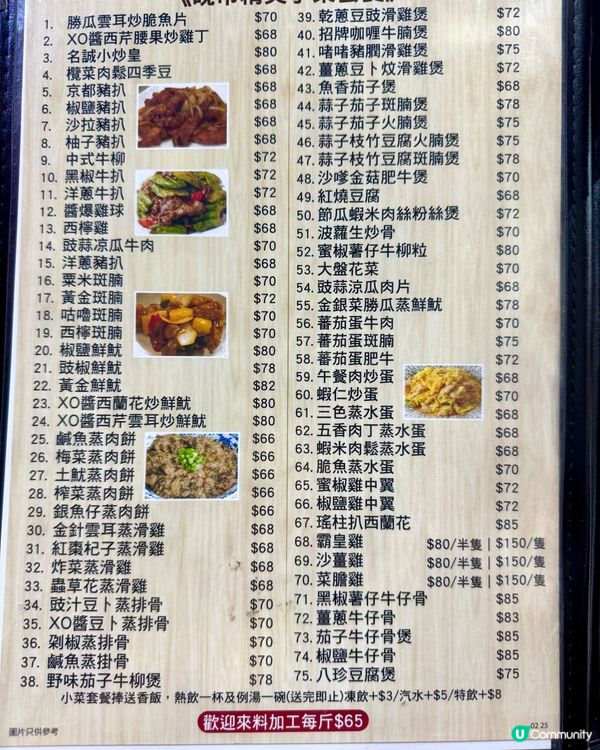 1. 勝瓜雲耳炒脆魚片 $70
2. XO醬西芹腰果炒雞丁 $68
3. 名誠小炒皇 $80
4. 欖菜肉鬆四季豆 $68
5. 京都豬扒 $68
6. 椒鹽豬扒 $68
7. 沙拉豬扒 $68
8. 柚子豬扒 $68
9. 中式牛柳 $72
10. 黑椒牛扒 $72
11. 洋蔥牛扒 $72
12. 醬爆雞球 $68
13. 西檸雞 $68
14. 豉蒜凉瓜牛肉 $70
15. 洋蔥豬扒 $68
16. 粟米斑腩 $70
17. 黃金斑腩 $72
18. 咕嚕斑腩 $70
19. 西檸斑腩 $70
20. 椒鹽鮮魷 $80
21. 豉椒鮮魷 $78
22. 黃金鮮魷 $82
23. XO醬西蘭花炒鮮魷 $80
24. XO醬西芹雲耳炒鮮魷 $80
25. 鹹魚蒸肉餅 $66
26. 梅菜蒸肉餅 $66
27. 土魷蒸肉餅 $66
28. 榨菜蒸肉餅 $66
29. 銀魚仔蒸肉餅 $66
30. 金針雲耳蒸滑雞 $68
31. 紅棗杞子蒸滑雞 $68
32. 炸菜蒸滑雞 $68
33. 蟲草花蒸滑雞 $68
34. 豉汁豆卜蒸排骨 $70
35. XO醬豆卜蒸排骨 $70
36. 剁椒蒸排骨 $70
37. 鹹魚蒸掛骨 $70
38. 野味茄子牛柳煲 $78
39. 乾蔥豆豉滑雞煲 $72
40. 招牌咖喱牛腩煲 $80
41. 啫啫豬膶滑雞煲 $75
42. 薑蔥豆卜炆滑雞煲 $72
43. 魚香茄子煲 $68
44. 蒜子茄子斑腩煲 $78
45. 蒜子茄子火腩煲 $75
46. 蒜子枝竹豆腐火腩煲 $75
47. 蒜子枝竹豆腐斑腩煲 $78
48. 沙嗲金菇肥牛煲 $70
49. 紅燒豆腐 $68
50. 節瓜蝦米肉絲粉絲煲 $72
51. 波蘿生炒骨 $70
52. 蜜椒薯仔牛柳粒 $80
53. 大盤花菜 $70
54. 豉蒜凉瓜肉片 $68
55. 金銀菜勝瓜蒸鮮魷 $78
56. 蕃茄蛋牛肉 $70
57. 蕃茄蛋斑腩 $75
58. 蕃茄蛋肥牛 $72
59. 午餐肉炒蛋 $68
60. 蝦仁炒蛋 $70
61. 三色蒸水蛋 $68
62. 五香肉丁蒸水蛋 $68
63. 蝦米肉鬆蒸水蛋 $68
64. 脆魚蒸水蛋 $70
65. 蜜椒雞中翼 $72
66. 椒鹽雞中翼 $72
67. 瑤柱扒西蘭花 $85
68. 霸皇雞 $80/半隻 | $150/隻
69. 沙薑雞 $80/半隻 | $150/隻
70. 菜膽雞 $80/半隻 | $150/隻
71. 黑椒薯仔牛仔骨 $85
72. 薑蔥牛仔骨 $83
73. 茄子牛仔骨煲 $85
74. 椒鹽牛仔骨 $85
75. 八珍豆腐煲 $75
小菜套餐捧送香飯，熱飲一杯及例湯一碗(送完即止)凍飲+$3/汽水+$5/特飲+$8
歡迎來料加工每斤$65
圖片只供參考
02 25
U Community